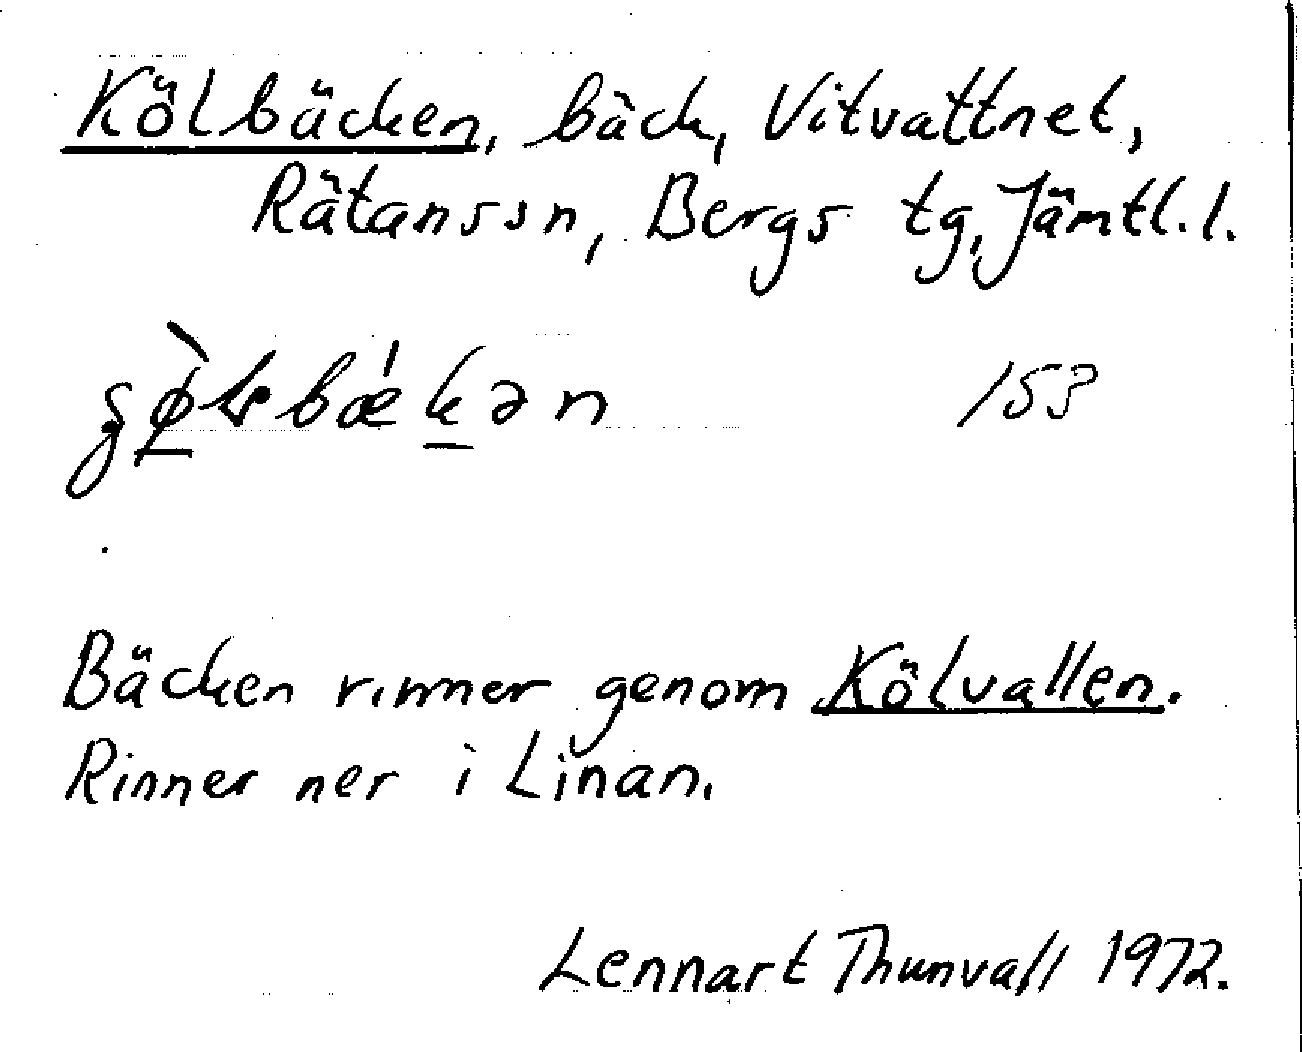 Kölbäcken, bäck, Vitvattnet,
Rätans sn, Bergs tg, Jämtl. l.
153
Bäcken rinner genom Kölvallen.
Rinner ner i Linan.
Lennart Thunvall 1972.